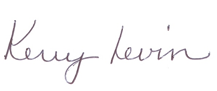 Kerry Levin